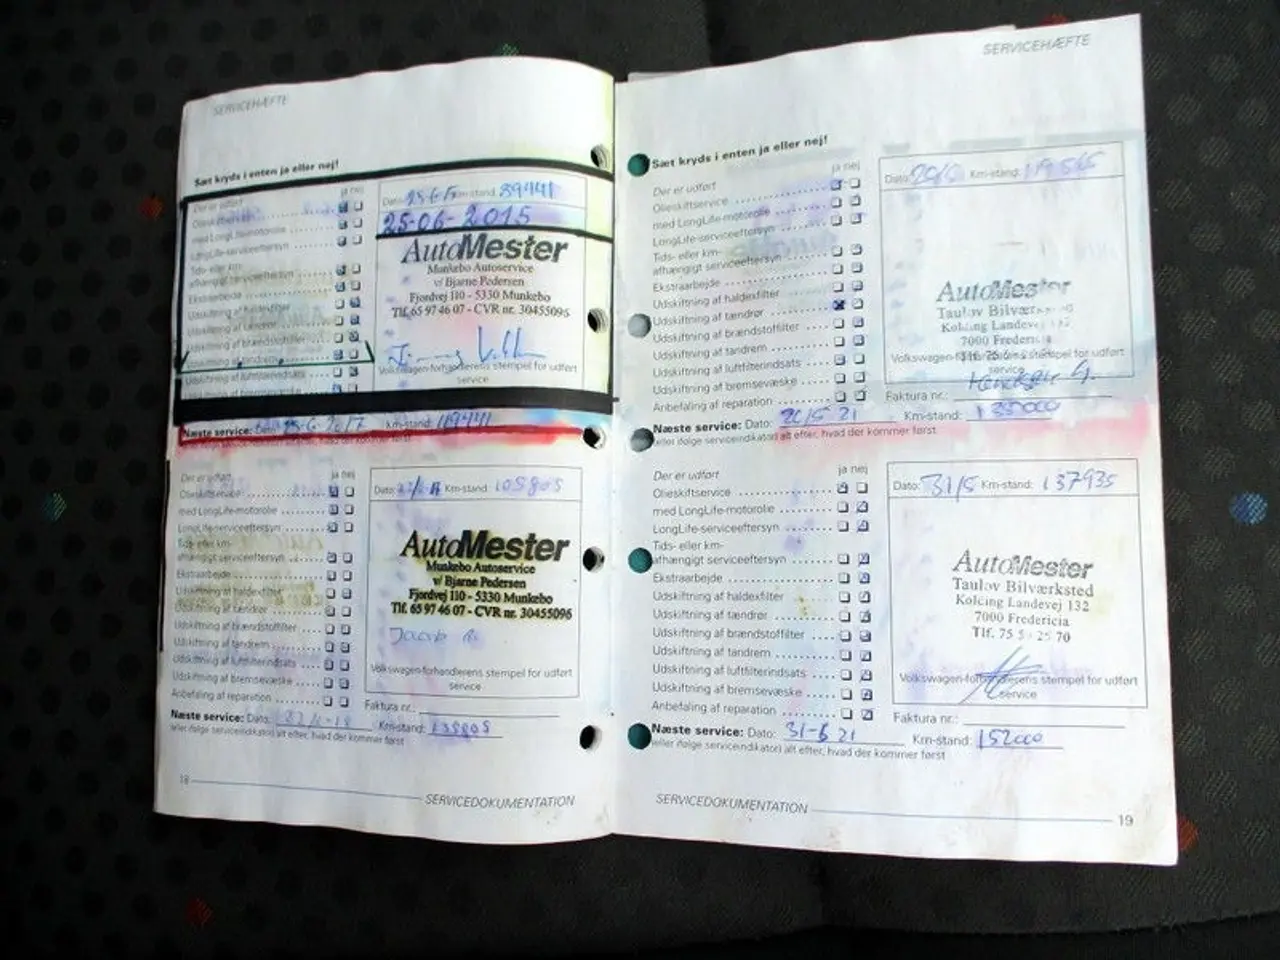 SERVICEHÆFTE
Sæt kryds i enten ja eller nej!
ja nej
Der er udført
Olieskiftservice
med LongLife-motorolie
LongLife-serviceeftersyn
Tids- eller km-
afhængigt serviceeftersyn
Ekstraarbejde
Udskiftning af haldexfilter
Udskiftning af tændrør
Udskiftning af brændstoffilter
Udskiftning af tandrem
Udskiftning af luftfilterindsats
Dato: Km-stand: 89441
25-06-2015
AutoMester
Munkebo Autoservice
v/ Bjarne Pedersen
Fjordvej 110 - 5330 Munkebo
Tlf. 65 97 46 07 - CVR nr. 30455096
Volkswagen-forhandlerens stempel for udført
service
Næste service: Km-stand: 119441
eller ifølge serviceindikator) alt efter, hvad der kommer først
Der er udført ja nej
Olieskiftservice
med LongLife-motorolie
LongLife-serviceeftersyn
Tids- eller km-
afhængigt serviceeftersyn
Ekstraarbejde
Udskiftning af haldexfilter
Udskiftning af tændrør
Udskiftning af brændstoffilter
Udskiftning af tandrem
Udskiftning af luftfilterindsats
Udskiftning af bremsevæske
Anbefaling af reparation
Dato: Km-stand: 105805
AutoMester
Munkebo Autoservice
v/ Bjarne Pedersen
Fjordvej 110 - 5330 Munkebo
Tlf. 65 97 46 07 - CVR nr. 30455096
Jacob
Volkswagen-forhandlerens stempel for udført
service
Faktura nr.:
Næste service: Dato: Km-stand: 135805
eller ifølge serviceindikator) alt efter, hvad der kommer først
18
SERVICEDOKUMENTATION
SERVICEHÆFTE
Sæt kryds i enten ja eller nej!
ja nej
Der er udført
Olieskiftservice
med LongLife-motorolie
LongLife-serviceeftersyn
Tids- eller km-
afhængigt serviceeftersyn
Ekstraarbejde
Udskiftning af haldexfilter
Udskiftning af tændrør
Udskiftning af brændstoffilter
Udskiftning af tandrem
Udskiftning af luftfilterindsats
Udskiftning af bremsevæske
Anbefaling af reparation
Dato: Km-stand: 119565
AutoMester
Taulov Bilværksted
Kolding Landevej 132
7000 Fredericia
Volkswagen-forhandlerens stempel for udført
service
Faktura nr.:
Næste service: Dato: 20/5 21 Km-stand: 135000
eller ifølge serviceindikator) alt efter, hvad der kommer først
Der er udført ja nej
Olieskiftservice
med LongLife-motorolie
LongLife-serviceeftersyn
Tids- eller km-
afhængigt serviceeftersyn
Ekstraarbejde
Udskiftning af haldexfilter
Udskiftning af tændrør
Udskiftning af brændstoffilter
Udskiftning af tandrem
Udskiftning af luftfilterindsats
Udskiftning af bremsevæske
Anbefaling af reparation
Dato: 31/5 Km-stand: 137935
AutoMester
Taulov Bilværksted
Kolding Landevej 132
7000 Fredericia
Tlf. 75 5 25 70
Volkswagen-forhandlerens stempel for udført
service
Faktura nr.:
Næste service: Dato: 31-5 21 Km-stand: 152000
eller ifølge serviceindikator) alt efter, hvad der kommer først
SERVICEDOKUMENTATION
19